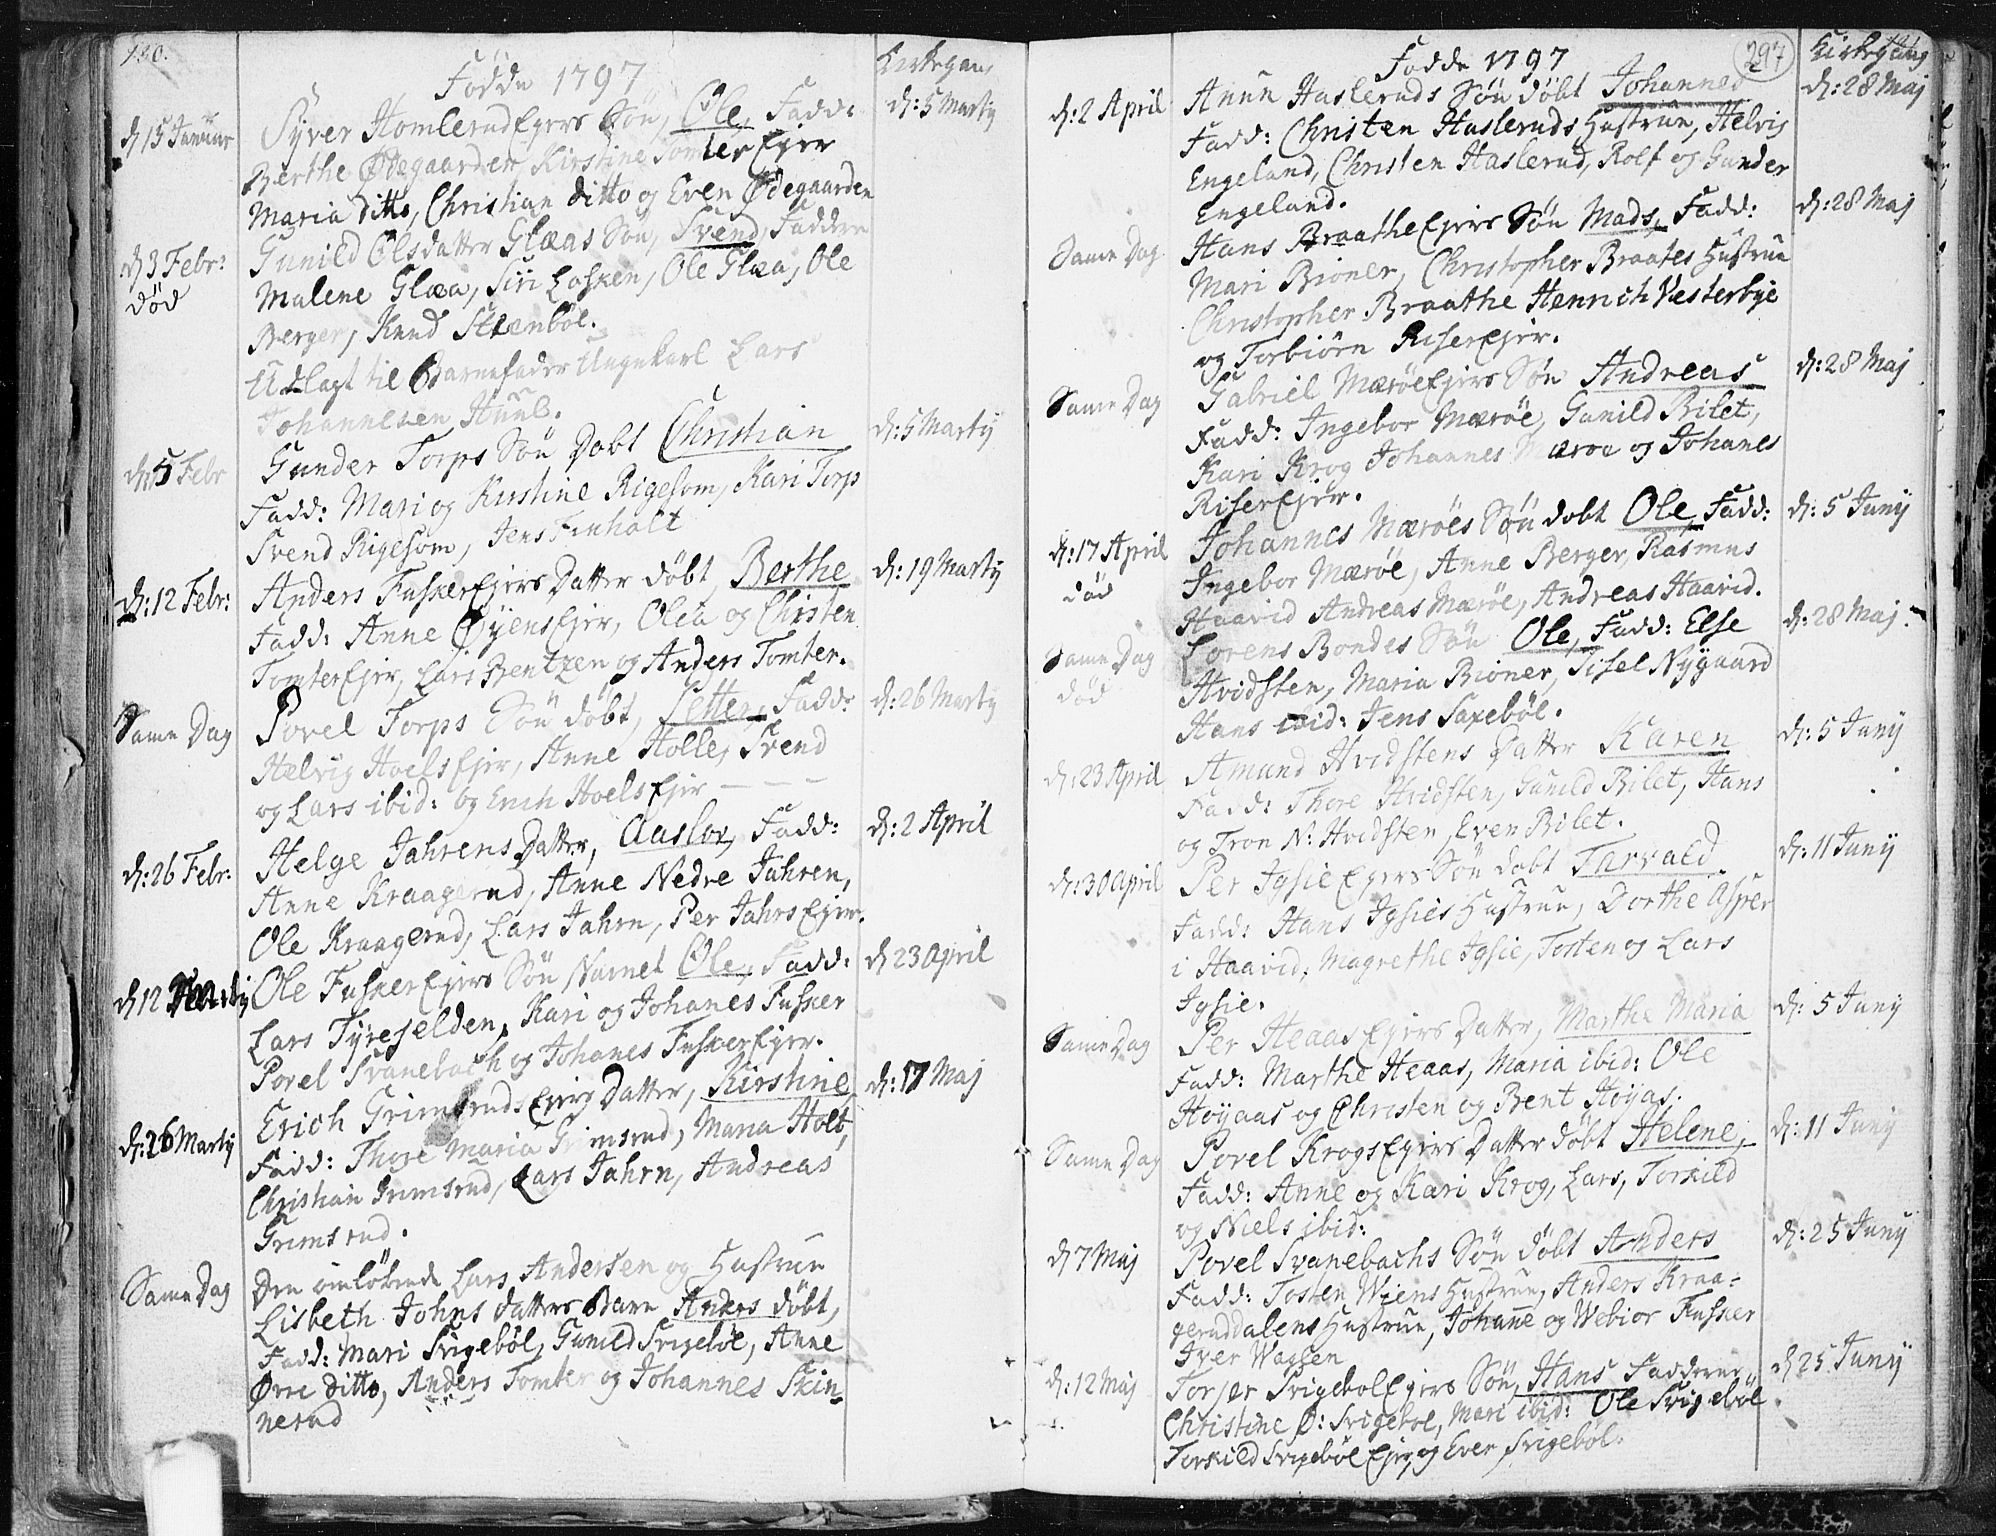 130.
Fødde 1797
Kirkegang
d. 15 Januar
Syver Homlerud Eiers Søn, Ole, Fadd:
d: 5 Marty
Berthe Ødegaarden, Kirstine Tomter Ejer
Maria ditto, Christian ditto og Even Ødegaarden
d. 3 Febr:
Gunild Olsdatter Glæas Søn, Svend, Faddere
død
Malene Glæa, Siri Løsken, Ole Glæa, Ole
Berger, Knud Steenbøl.
Udlagt til Barnefader Ungekarl Lars
Johannesen
d: 5 Febr
Gunder Torps Søn Døbt Christian
d: 5 Marty
Fadd: Mari og Kirstine Rigesom, Kari Torp
Svend Rigesom, Jens Finholt
d: 12 Febr:
Anders Fusker Ejers Datter døbt, Berthe
d: 19 Marty
Fadd: Anne Øyens Ejer, Olea og Christen
Tomter Ejer, Lars Bentzen og Anders Tomter.
Same Dag
Povel Torps Søn døbt, Petter, Fadd:
d: 26 Marty
Helvig Hoels Ejer, Anne Holle, Svend
og Lars ibid: og Erich Hoels Ejer — —
d: 26 Febr:
Helge Jahrens Datter, Aaslov, Fadd:
d: 2 April
Anne Kraagerud, Anne Nedre Jahren,
Ole Kraagerud, Lars Jahrn, Per Jahrs Ejer.
d 12 Marty
Ole Fusker Ejers Søn Navnet Ole, Fadd:
d 23 April
Lars Fyrejelden, Kari og Johanes Fusker
Povel Svanebach og Johanes Fusker Ejer.
d: 26 Marty
Erich Grimsruds Ejers Datter, Kirstine
d: 17 Maj
Fadd: Thore Maria Grimsrud, Maria Holt,
Christian Grimsrud, Lars Jahrn, Andreas
Grimsrud.
Same Dag
Den omløbende Lars Andersen og Hustrue
Lisbeth Johns datters Barn Anders døbt,
Fadd: Mari Svigebøl, Gunild Svigebøl, Anne
Øvre ditto, Anders Tomter og Johannes Skin-
nerud
297
Fødde 1797
Kirkegang
d: 2 April
Anun Hasleruds Søn døbt Johannes
d: 28 Maj
Fadd: Christen Hasleruds Hustrue, Helvig
Engeland, Christen Haslerud, Rolf og Gunder
Engeland.
Same Dag
Hans Braathe Ejers Søn Mads, Fadd:
d: 28 Maj
Mari Bioner, Christopher Braates Hustrue
Christopher Braathe Henrich Vesterbye
og Torbiörn Riser Ejer.
Same Dag
Gabriel Mærøe Ejers Søn Andreas
d: 28 Maj
Fadd: Ingebor Mærøe, Gunild Bilet,
Kari Krog Johannes Mærøe og Johanes
Riser Ejer.
d: 17 April
Johannes Mærøes Søn døbt Ole, Fadd:
d: 5 Juny
død
Ingebor Mærøe, Anne Berger, Rasmus
Haavid Andreas Mærøe, Andreas Haavid.
Same Dag
Lorens Bondes Søn Ole, Fadd: Else
d: 28 Maj.
død
Hvidsten, Maria Bioner, Sisel Nygaard
Hans ibid: Jens Saxebøl.
d: 23 April
Amund Hvidstens Datter Karen
d: 5 Juny
Fadd: Thore Hvidsten, Gunild Bilet, Hans
og Tron N: Hvidsten, Even Bilet.
d: 30 April
Per Igsie Ejers Søn døbt Torvald.
d: 11 Juny
Fadd: Hans Igsies Hustrue, Dorthe Asper
i Haavid, Magrethe Igsie, Tosten og Lars
Igsie.
Same Dag
Per Heaas Ejers Datter, Marthe Maria
d: 5 Juny
Fadd: Marthe Heaas, Maria ibid: Ole
Høyaas og Christen og Bent Høyas.
Same Dag
Povel Krogs Ejers Datter døbt Helene,
d: 11 Juny
Fadd: Anne og Kari Krog, Lars, Torkild
og Niels ibid:
d 7 Maj
Povel Svanebachs Søn døbt Anders
d: 25 Juny
Fadd: Tosten Wiens Hustrue, Anders Kraa-
geruddalens Hustrue, Johane og Webior Fusker
Iver Waglen
d: 12 Maj
Torjer Svigebøl Ejers Søn, Hans Faddere
d 25 Juny
Christine Ø: Svigebøl, Mari ibid: Ole Svigebøl
Torkild Svigebøl Ejer, og Even Svigebøl.